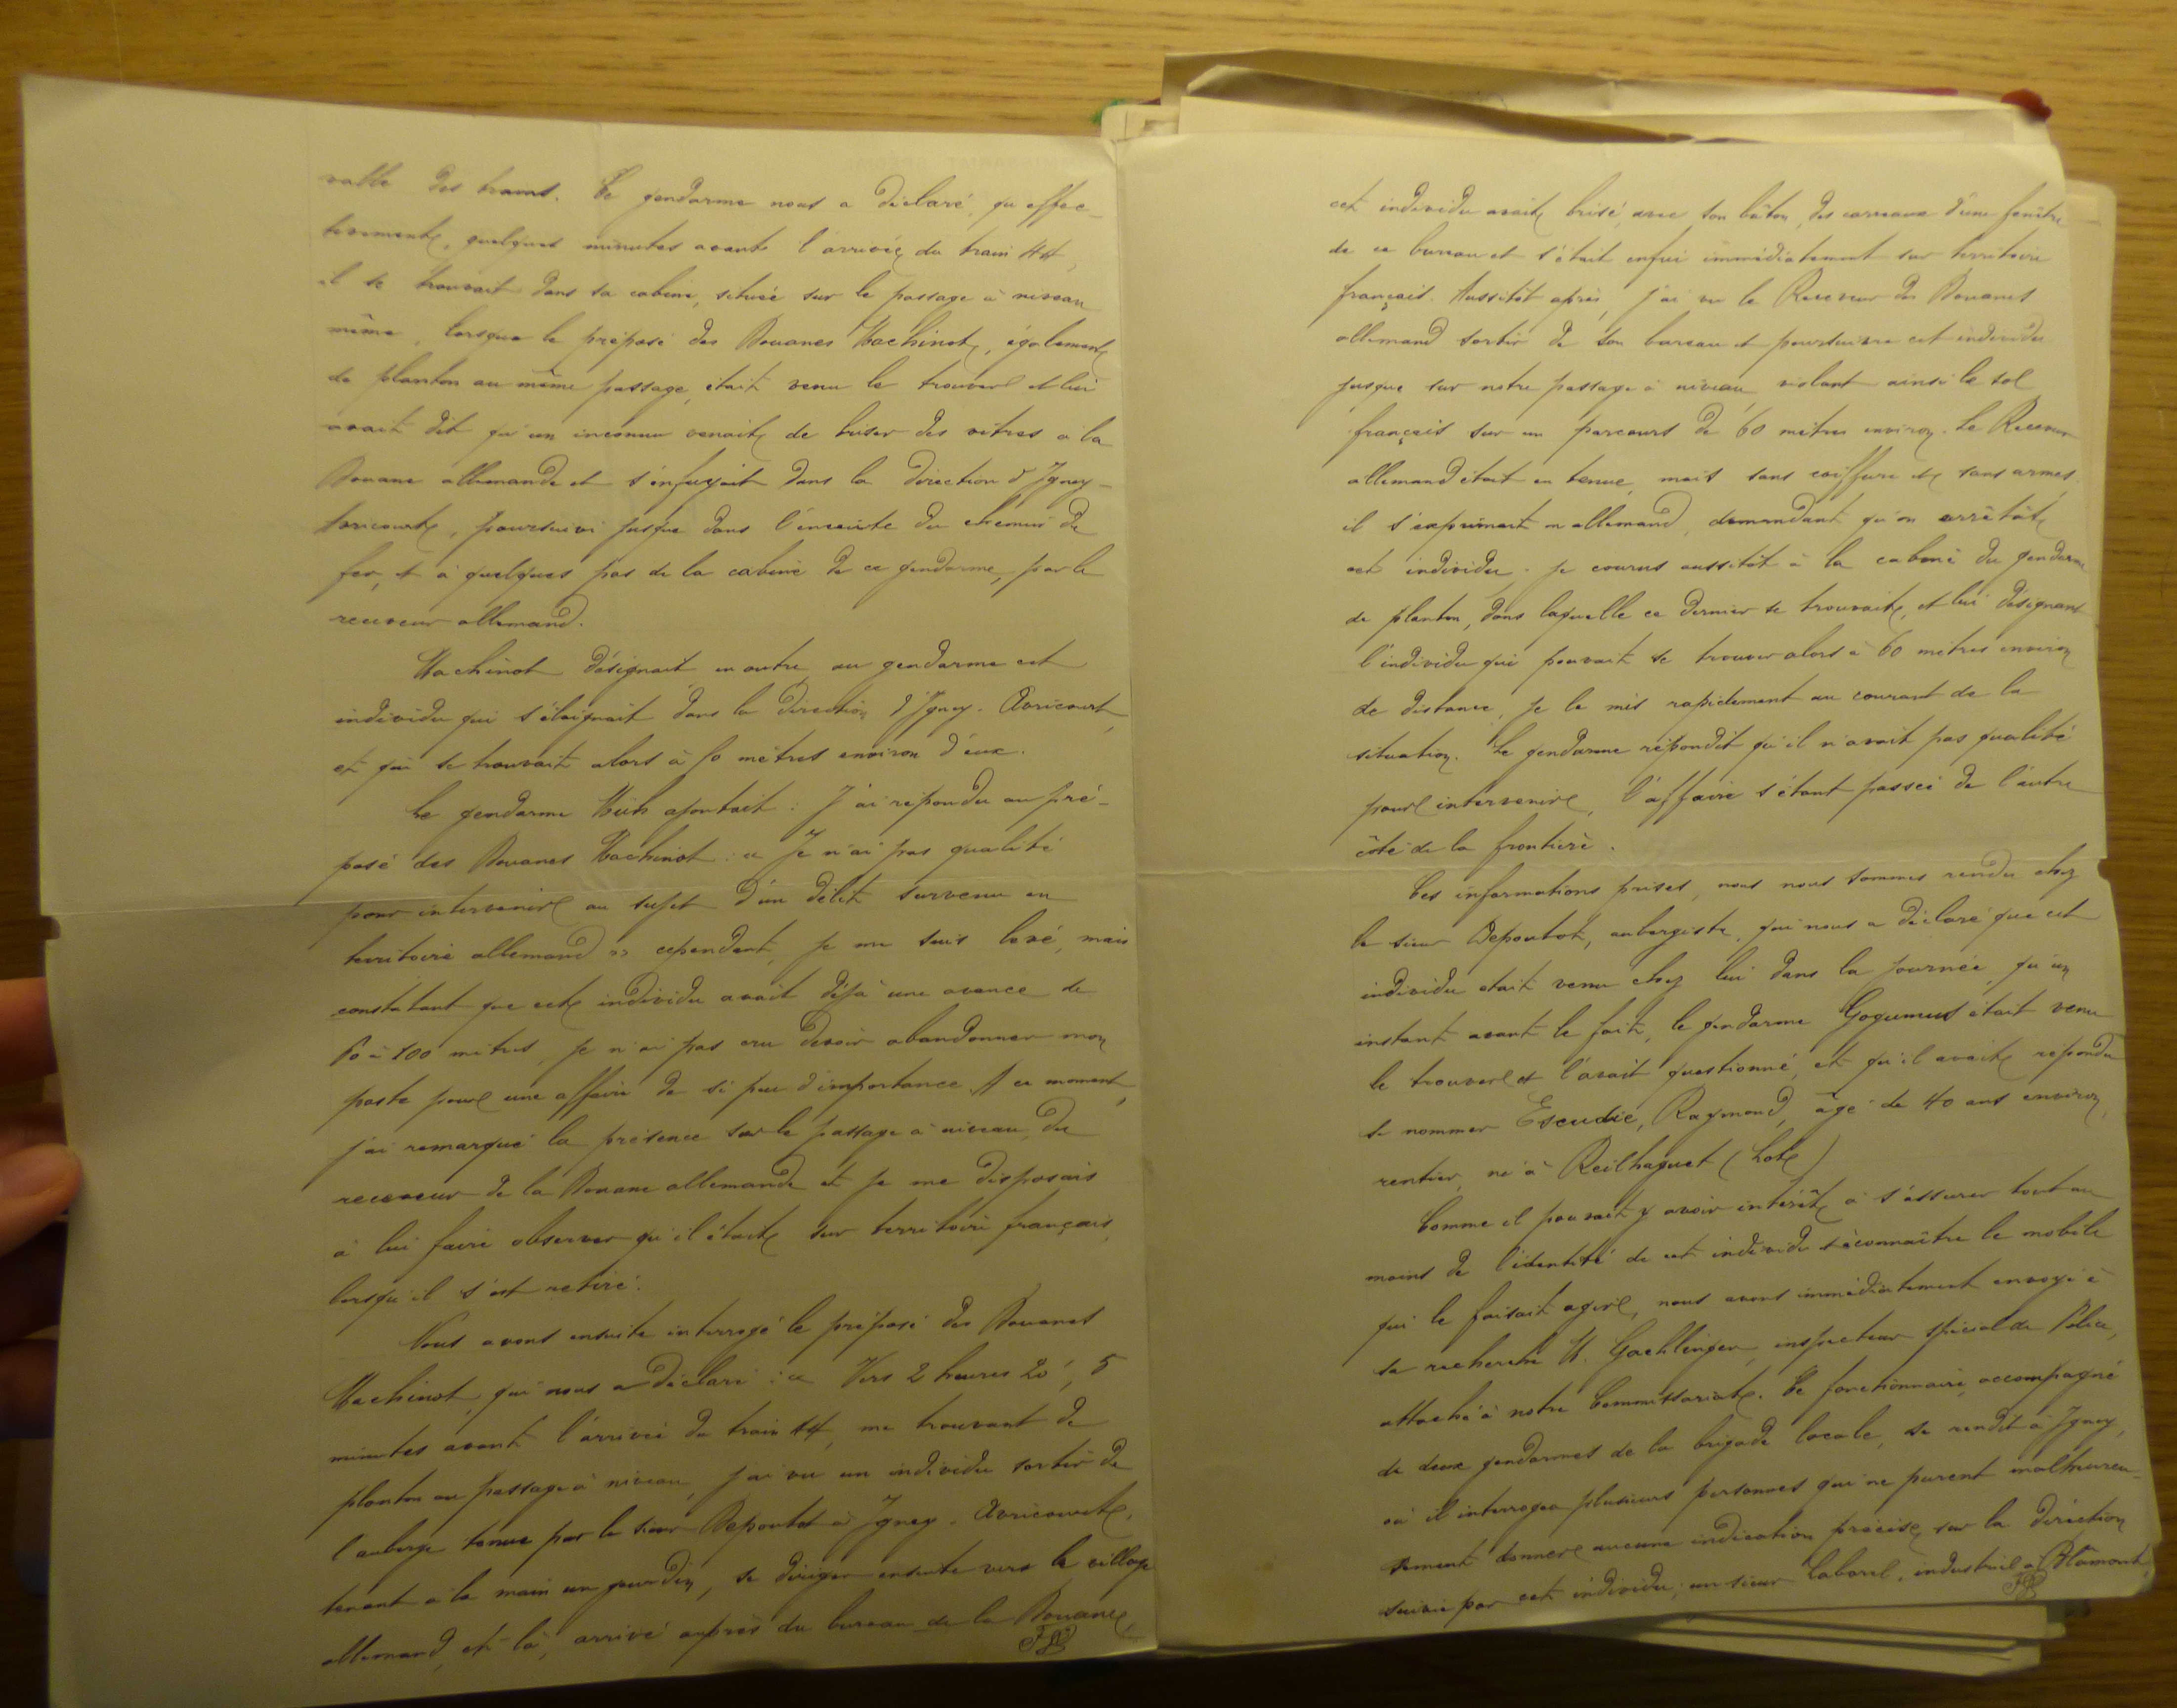 valle des trains. Ce gendarme nous a déclaré, qu'effec-
tivement, quelques minutes avant l'arrivée du train 44,
il se trouvait dans sa cabine, située sur le passage à niveau
même, lorsque le préposé des Douanes Machinot, également
de planton au même passage, était venu le trouver et lui
avait dit qu'un inconnu venait de briser des vitres à la
Douane allemande et s'enfuyait dans la direction d'Igney-
Avricourt, poursuivi jusque dans l'enceinte du chemin de
fer, et à quelques pas de la cabine de ce gendarme, par le
receveur allemand.
Machinot désignait en outre au gendarme cet
individu qui s'éloignait dans la direction d'Igney-Avricourt,
et qui se trouvait alors à 50 mètres environ d'eux.
Le gendarme ajoutait : J'ai répondu au pré-
posé des Douanes Machinot : « Je n'ai pas qualité
pour intervenir au sujet d'un délit survenu en
territoire allemand » cependant, je me suis levé, mais
constatant que cet individu avait déjà une avance de
à 100 mètres, je n'ai pas cru devoir abandonner mon
poste pour une affaire de si peu d'importance. A ce moment,
j'ai remarqué la présence sur le passage à niveau, du
receveur de la Douane allemande et je me disposais
à lui faire observer qu'il était sur territoire français,
lorsqu'il s'est retiré.
Nous avons ensuite interrogé le préposé des Douanes
Machinot, qui nous a déclaré : « Vers 2 heures 20', 5
minutes avant l'arrivée du train 44, me trouvant de
planton au passage à niveau, j'ai vu un individu sortir de
l'auberge tenue par le sieur Depoutot à Igney-Avricourt,
tenant à la main un gourdin, se diriger ensuite vers le village
allemand, et là, arrivé auprès du bureau de la Douane,
cet individu avait brisé, avec son bâton, des carreaux d'une fenêtre
de ce bureau et s'était enfui immédiatement sur territoire
français. Aussitôt après, j'ai vu le Receveur des Douanes
allemand sortir de son bureau et poursuivre cet individu
jusque sur notre passage à niveau, violant ainsi le sol
français sur un parcours de 60 mètres environ. Le Receveur
allemand était en tenue, mais sans coiffure et sans armes,
il s'exprimait en allemand, demandant qu'on arrêtât
cet individu. Je courus aussitôt à la cabine du gendarme
de planton, dans laquelle ce dernier se trouvait, et lui désignant
l'individu qui pouvait se trouver alors à 60 mètres environ
de distance, je le mis rapidement au courant de la
situation. Le gendarme répondit qu'il n'avait pas qualité
pour intervenir, l'affaire s'étant passée de l'autre
côté de la frontière.
Ces informations prises, nous nous sommes rendu chez
le sieur Depoutot, aubergiste, qui nous a déclaré que cet
individu était venu chez lui dans la journée, qu'un
instant avant le fait, le gendarme Gogumus était venu
le trouver et l'avait questionné, et qu'il avait répondu
se nommer Escudié, Raymond, âgé de 40 ans environ,
rentier, né à Reilhaguet (Lot)
Comme il pouvait y avoir intérêt à s'assurer tout au
moins de l'identité de cet individu & à connaître le mobile
qui le faisait agir, nous avons immédiatement envoyé à
sa recherche M. Gaechlinger, inspecteur spécial de Police,
attaché à notre Commissariat. Ce fonctionnaire, accompagné
de deux gendarmes de la brigade locale, se rendit à Igney,
où il interrogea plusieurs personnes qui ne purent malheureu-
sement donner aucune indication précise, sur la direction
suivie par cet individu; un sieur Laborel, industriel à Blâmont,